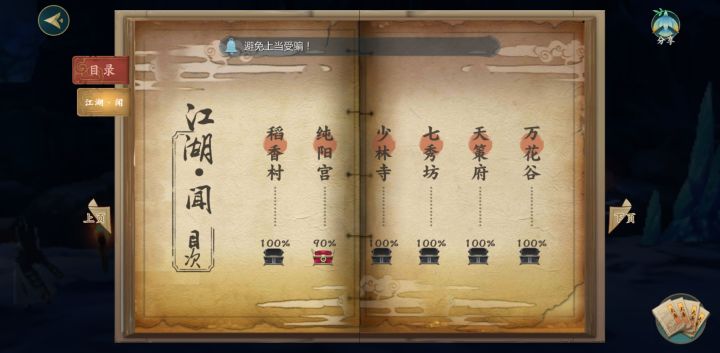 避免上当受骗！
分享
目录
江湖·闻
江湖·闻
目次
稻香村
100%
纯阳宫
90%
少林寺
100%
七秀坊
100%
天策府
100%
万花谷
100%
上页
下页